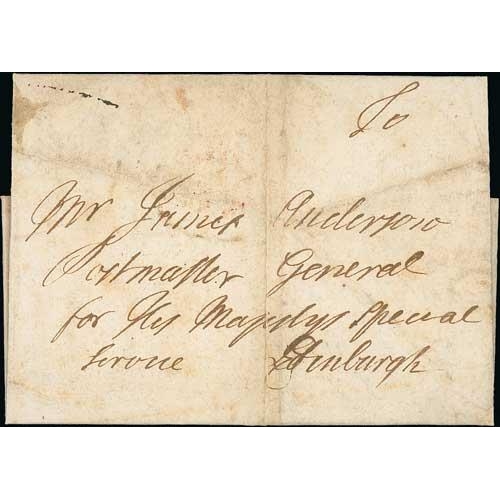 To
Mr James Anderson
Postmaster General
for His Majestys Special
Service Edinburgh